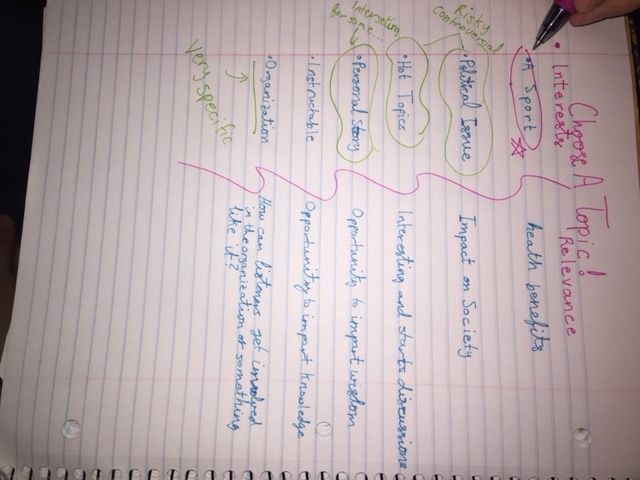 Choose A Topic!
• Interests
Relevance
• A Sport
health benefits
Risky
Controversial
• Political Issue
Impact on Society
• Hot Topics
Interesting and starts discussions
Interesting
for some...
• Personal Story
Opportunity to impart wisdom
• Instructable
Opportunity to impart knowledge
• Organization
How can listeners get involved
in the organization or something
like it?
Very specific